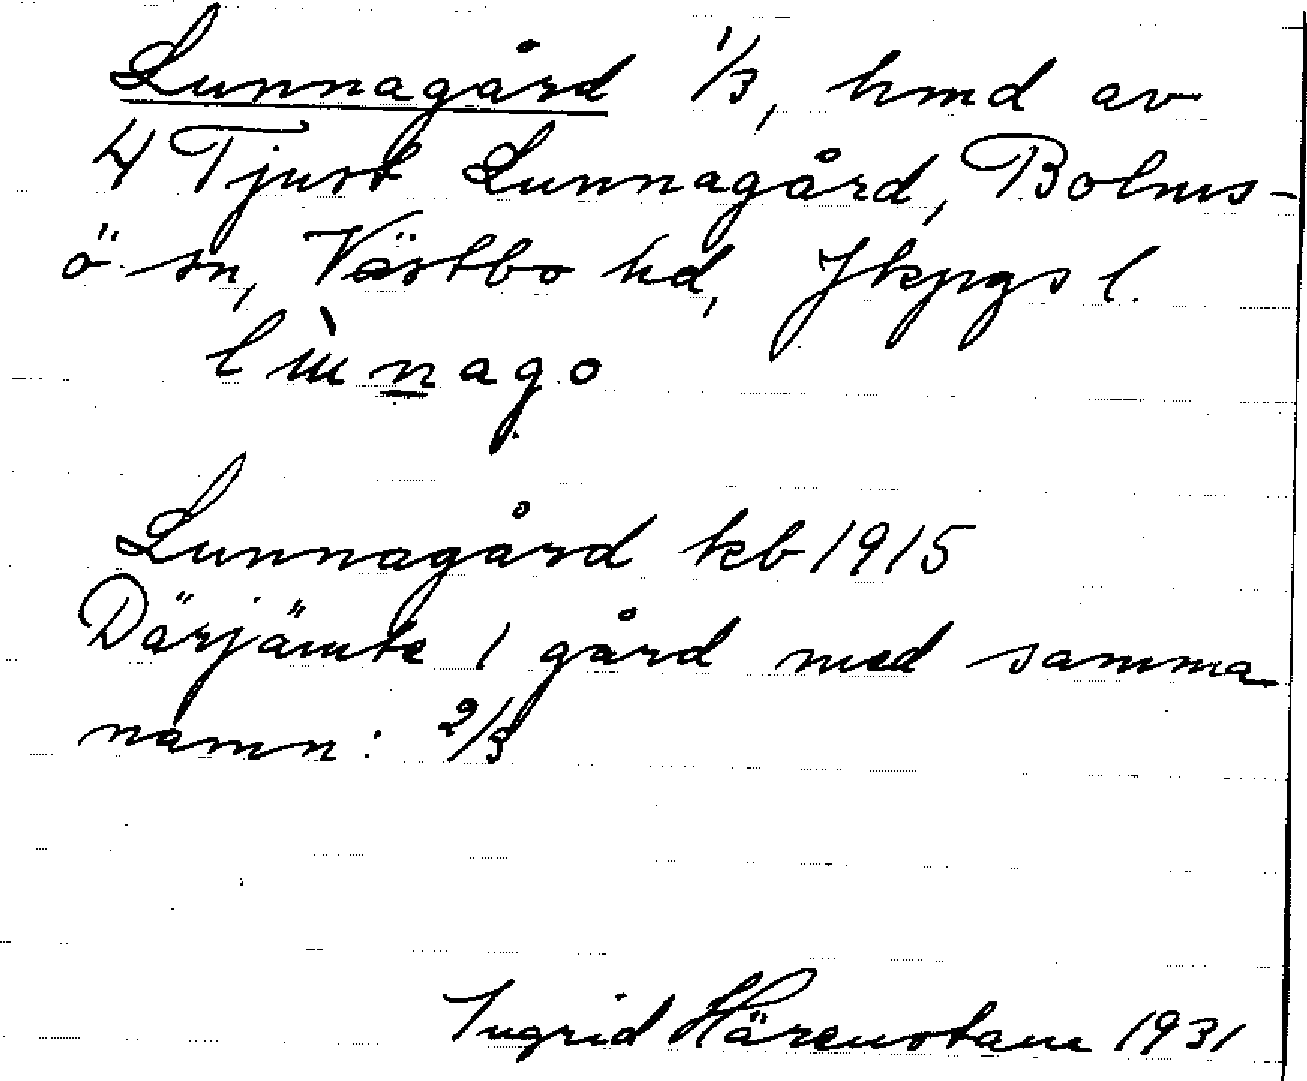 Lunnagård 1/3, hmd av
4 Tjust Lunnagård, Bolms-
ö sn, Västbo hd, Jkpgs l.
Lunnagård kb 1915
Därjämte 1 gård med samma
namn: 2/3
Ingrid Härenstam 1931